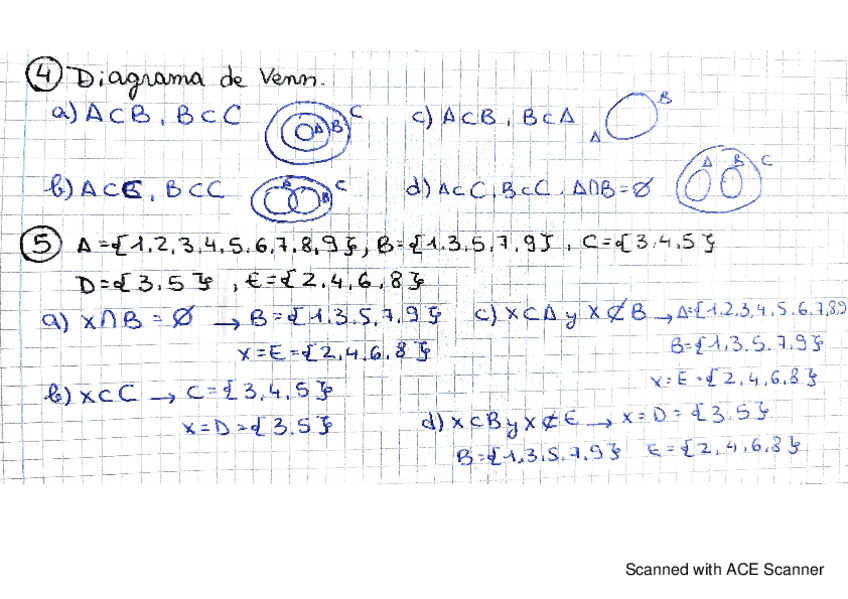 ④ Diagrama de Venn.
a) A⊂B, B⊂C A B C
c) A⊂B, B⊂A A B
b) A⊂C, B⊂C A B C
d) A⊂C, B⊂C, A∩B=∅ A B C
⑤ A={1,2,3,4,5,6,7,8,9}, B={1,3,5,7,9}, C={3,4,5}
D={3,5}, E={2,4,6,8}
a) X∩B=∅ → B={1,3,5,7,9}
X=E={2,4,6,8}
b) X⊂C → C={3,4,5}
X=D={3,5}
c) X⊂A y X⊄B → A={1,2,3,4,5,6,7,8,9
B={1,3,5,7,9}
X=E={2,4,6,8}
d) X⊂B y X⊄E → X=D={3,5}
B={1,3,5,7,9} E={2,4,6,8}
Scanned with ACE Scanner